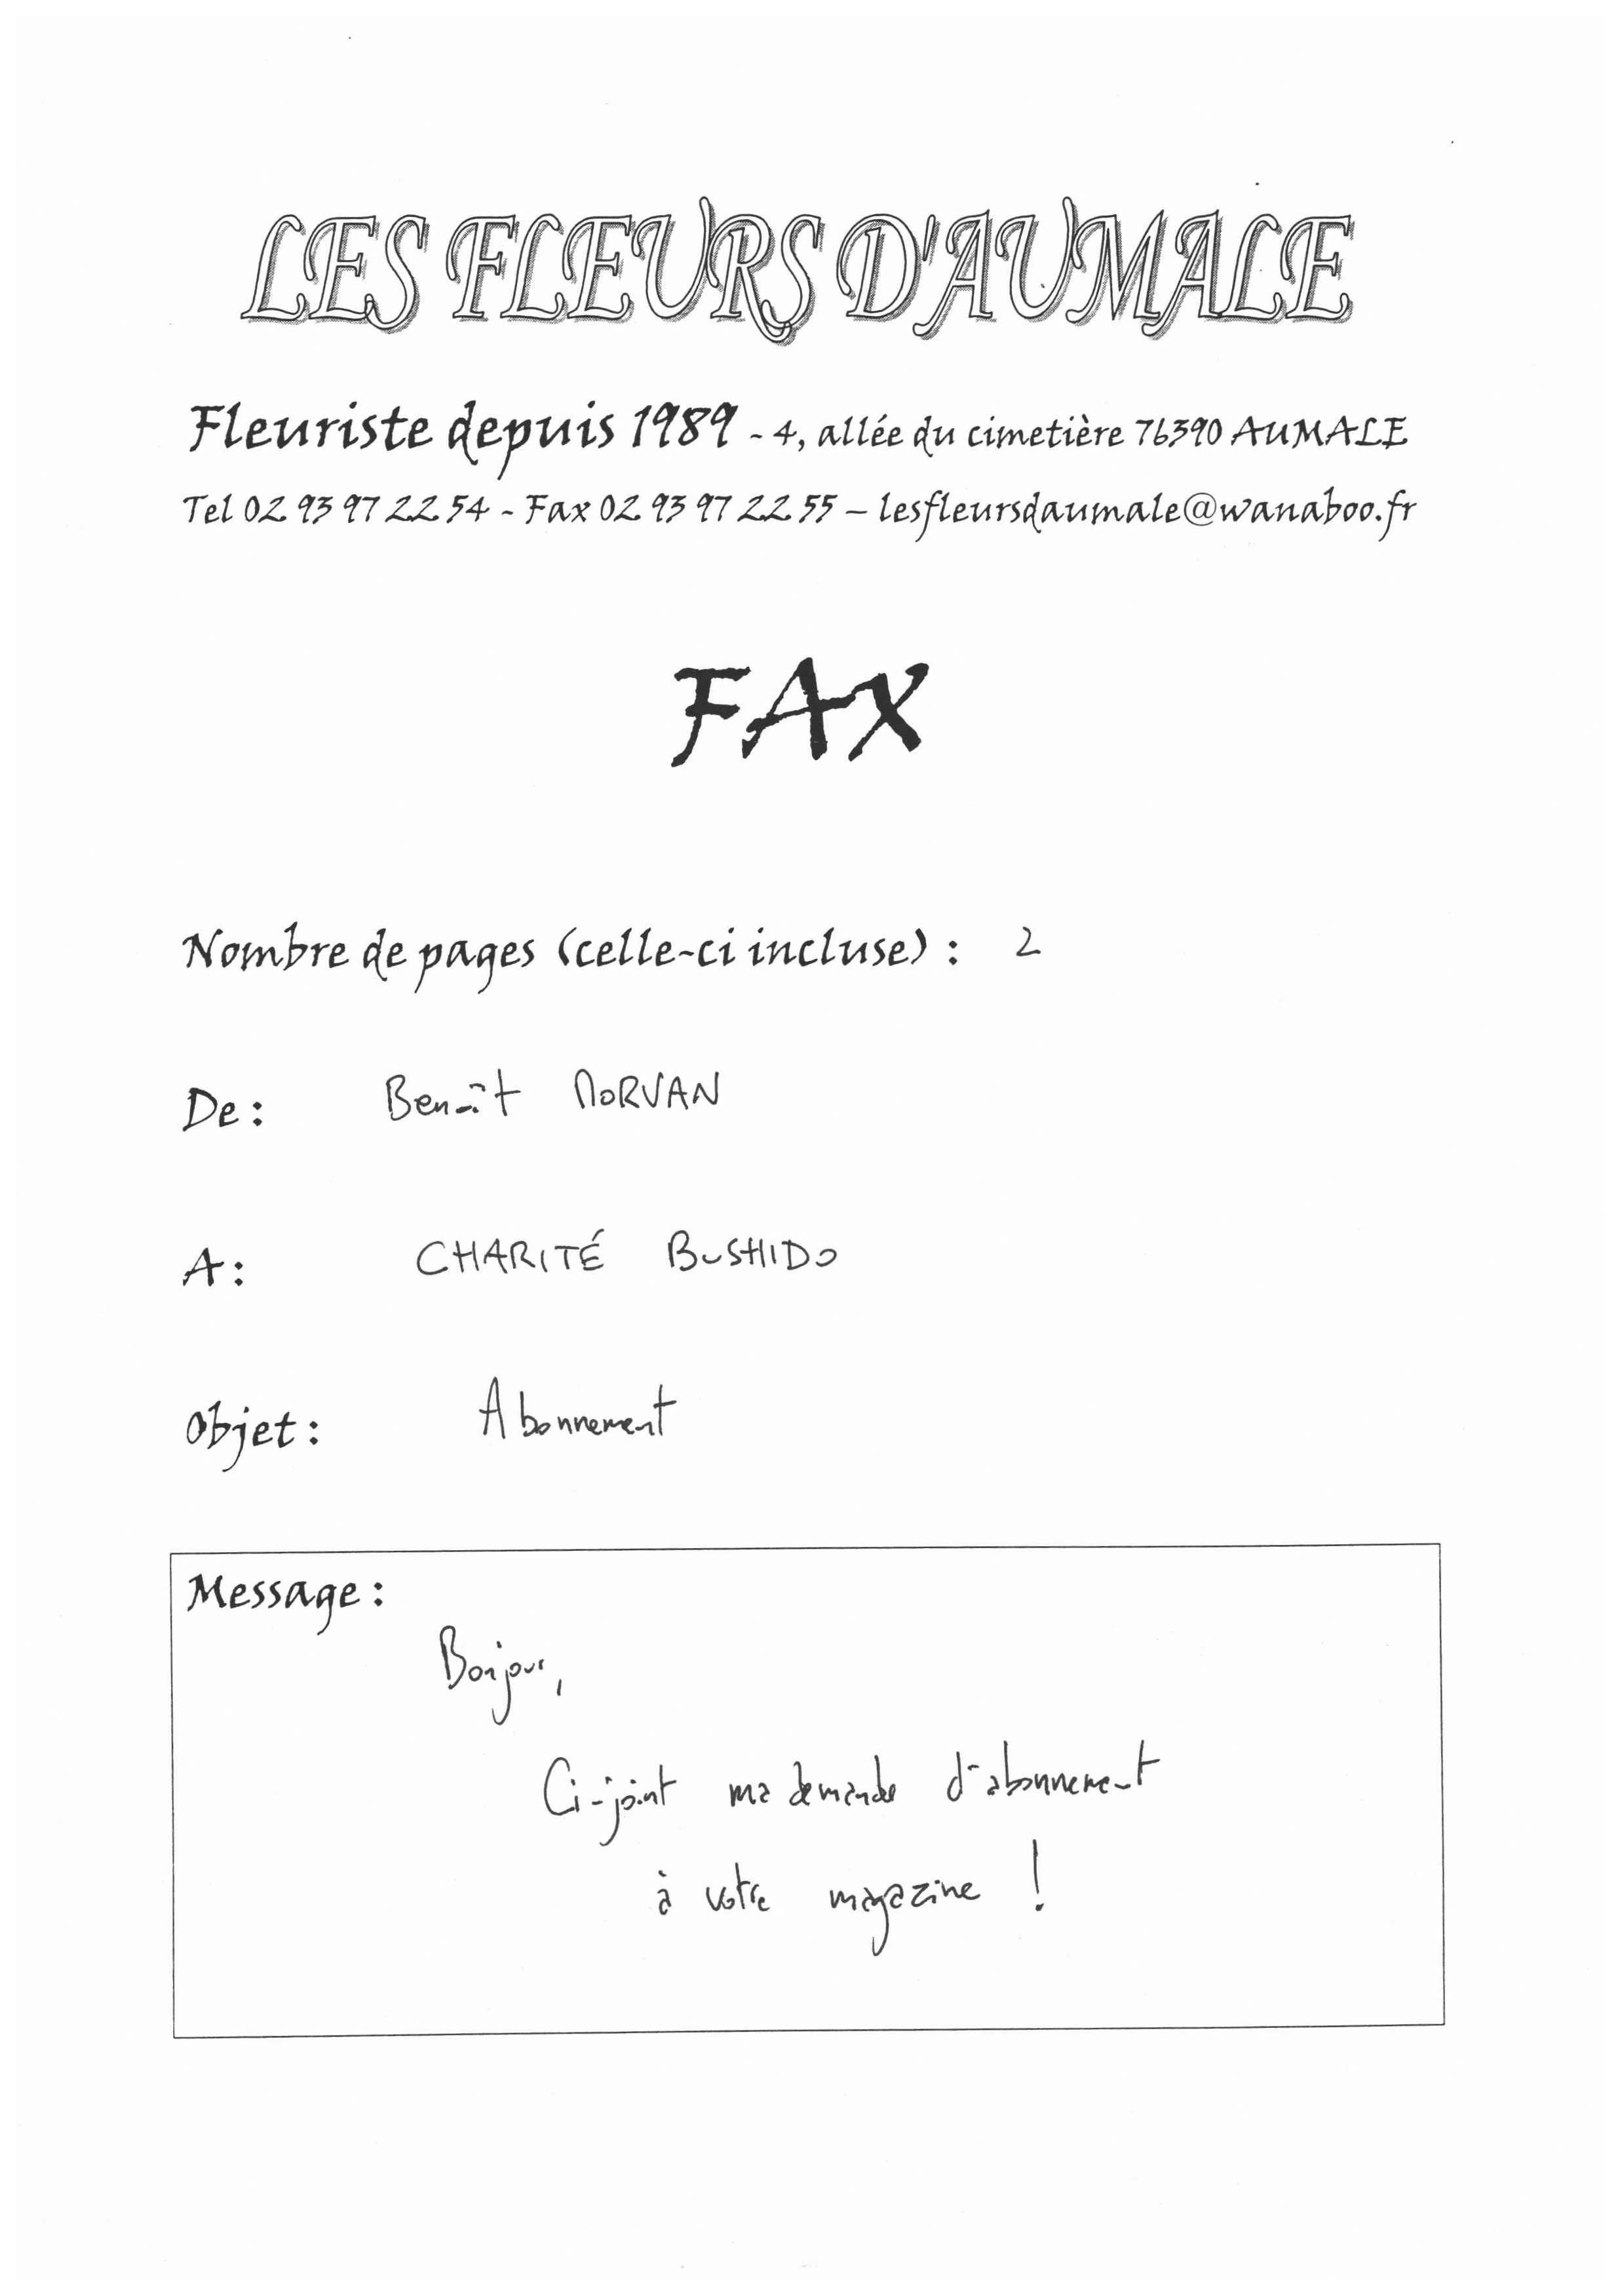 LES FLEURS D'AUMALE
Fleuriste depuis 1989 - 4, allée du cimetière 76390 AUMALE
Tel 02 93 97 22 54 - Fax 02 93 97 22 55 – lesfleursdaumale@wanaboo.fr
FAX
Nombre de pages (celle-ci incluse) : 2
De : Benoît MORVAN
A : CHARITÉ BUSHIDO
Objet : Abonnement
Message :
Bonjour,
Ci-joint ma demande d'abonnement
à votre magazine !